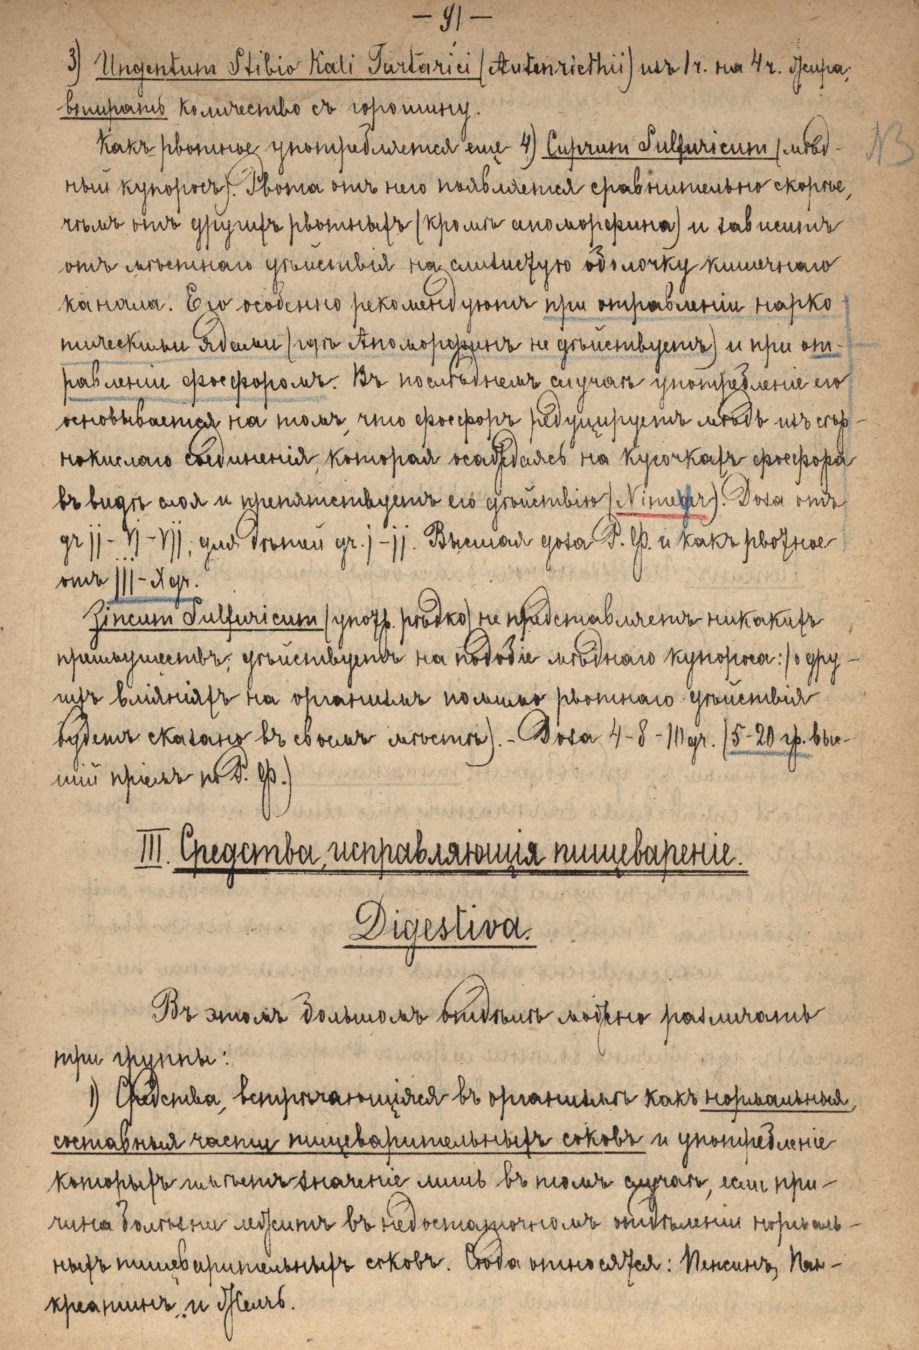 — 91 —
3) Ungentum Stibio Kali Tartarici (Autenriethii) изъ 1 ч. на 4 ч. жира,
втирать количество съ горошину.
Какъ рвотное употребляется еще 4) Cuprum Sulfuricum (мѣд-
NB
ный купоросъ). Рвота отъ него появляется сравнительно скорѣе,
чѣмъ отъ другихъ рвотныхъ (кромѣ апоморфина) и зависитъ
отъ мѣстнаго дѣйствія на слизистую оболочку кишечнаго
канала. Его особенно рекомендуютъ при отравленіи нарко
тическими ядами (гдѣ Апоморфинъ не дѣйствуетъ) и при от-
равленіи фосфоромъ. Въ послѣднемъ случаѣ употребленіе его
основывается на томъ, что фосфоръ редуцируетъ мѣдь изъ сѣр-
нокислаго соединенія, которая осаждаясь на кусочкахъ фосфора
въ видѣ слоя и препятствуетъ его дѣйствію (Nimeyer). Doza отъ
gr jj - Vj - Vjj, для дѣтей gr. j - jj. Высшая доза Р. Ф. и какъ рвотное
отъ jjj - X gr.
Zincum Sulfuricum (употр. рѣдко) не представляетъ никакихъ
преимуществъ, дѣйствуетъ на подобіе мѣднаго купороса :/о дру-
гихъ вліяніяхъ на организмъ помимо рвотнаго дѣйствія
будетъ сказано въ своемъ мѣстѣ). - Doza 4 - 8 - 10 gr. (5-20 гр. выс-
шій пріемъ по Р. Ф.)
III. Средства, исправляющія пищевареніе.
Digestiva.
Въ этомъ большомъ отдѣлѣ можно различать
три группы:
1) Средства, встрѣчающіяся въ организмѣ какъ нормальныя
составныя части пищеварительныхъ соковъ и употребленіе
которыхъ имѣетъ значеніе лишь въ томъ случаѣ, если при-
чина болѣзни лежитъ въ недостаточномъ отдѣленіи нормаль-
ныхъ пищеварительныхъ соковъ. Сюда относятся: Пепсинъ, Пан-
креатинъ, и Желчь.